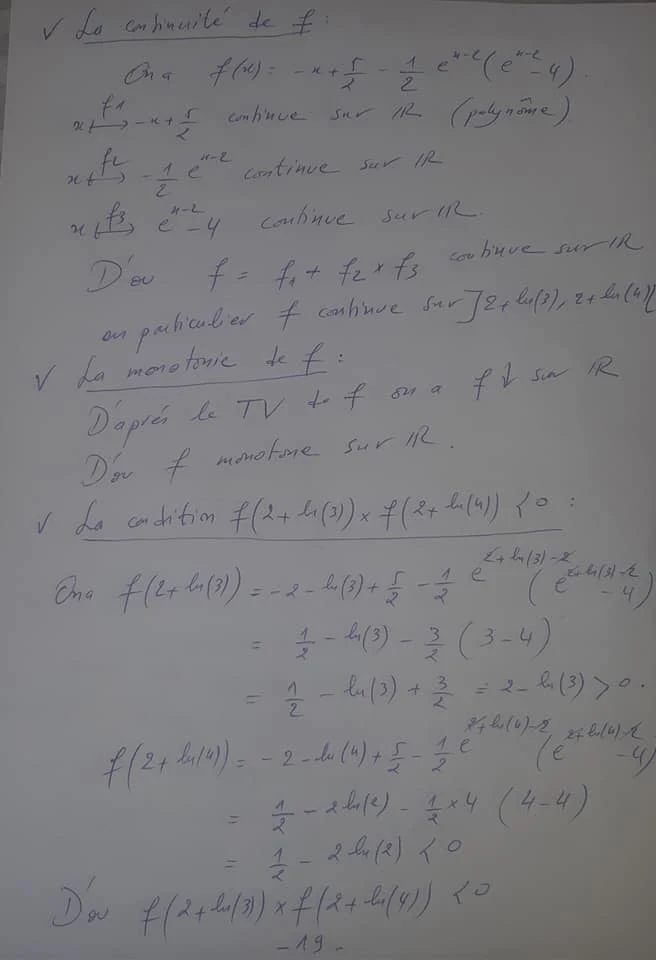 ✓ La continuité de f :
On a f(x) = -x + 5/2 - 1/2 e^{x-2} (e^{x-2} - 4).
x ⟼^{f1} -x + 5/2 continue sur IR (polynôme)
x ⟼^{f2} -1/2 e^{x-2} continue sur IR
x ⟼^{f3} e^{x-2} - 4 continue sur IR.
D'où f = f1 + f2 × f3 continue sur IR
en particulier f continue sur ]2+ln(3), 2+ln(4)[
✓ La monotonie de f :
D'aprés le TV de f on a f ↓ sur IR
D'où f monotone sur IR.
✓ La condition f(2+ln(3)) × f(2+ln(4)) < 0 :
On a f(2+ln(3)) = -2 - ln(3) + 5/2 - 1/2 e^{2+ln(3)-2} (e^{2+ln(3)-2} - 4)
= 1/2 - ln(3) - 3/2 (3-4)
= 1/2 - ln(3) + 3/2 = 2 - ln(3) > 0.
f(2+ln(4)) = -2 - ln(4) + 5/2 - 1/2 e^{2+ln(4)-2} (e^{2+ln(4)-2} - 4)
= 1/2 - 2ln(2) - 1/2 × 4 (4-4)
= 1/2 - 2ln(2) < 0
D'où f(2+ln(3)) × f(2+ln(4)) < 0
- 19 -